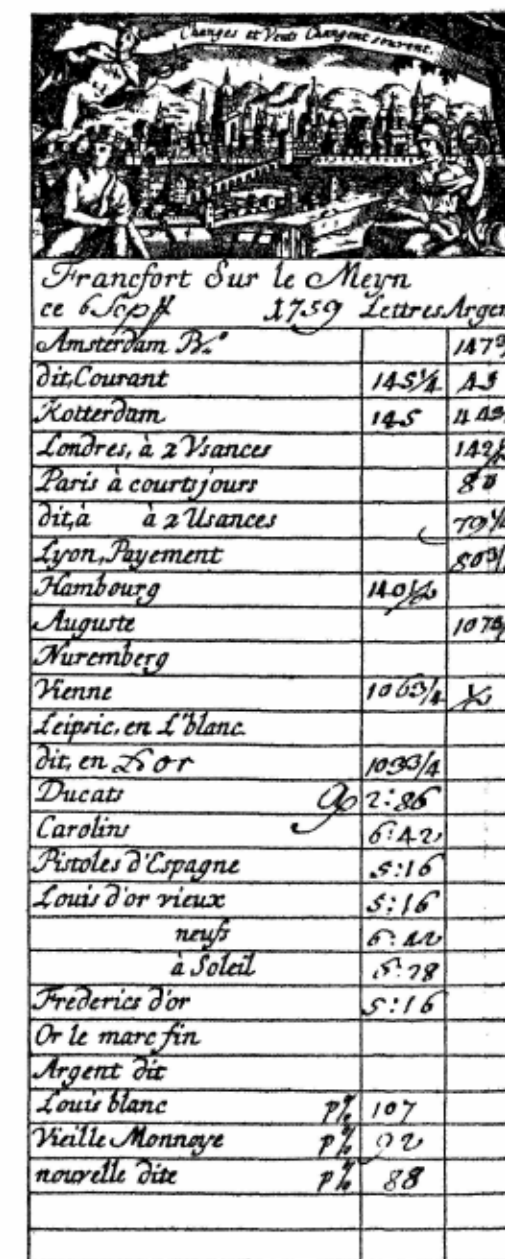 Changes et Vents Changent souvent.
Francfort Sur le Meyn
ce 6 1759 Lettres Argen
Amsterdam Bco 147
dit, Courant 145¼ 45
Rotterdam 145 443
Londres, à 2 Vsances 142
Paris à courts jours 80
dit, à à 2 Usances 79¼
Lyon, Payement 803/
Hambourg 140½
Auguste 107
Nuremberg
Vienne 1063/4 ½
Leipsic, en L'blanc
dit, en L'or 1033/4
Ducats 2:86
Carolins 6:42
Pistoles d'Espagne 5:16
Louis d'or vieux 5:16
neufs 6:42
à Soleil 5:28
Frederics d'or 5:16
Or le marc fin
Argent dit
Louis blanc p% 107
Vieille Monnoye p% 92
nouvelle dite p% 88